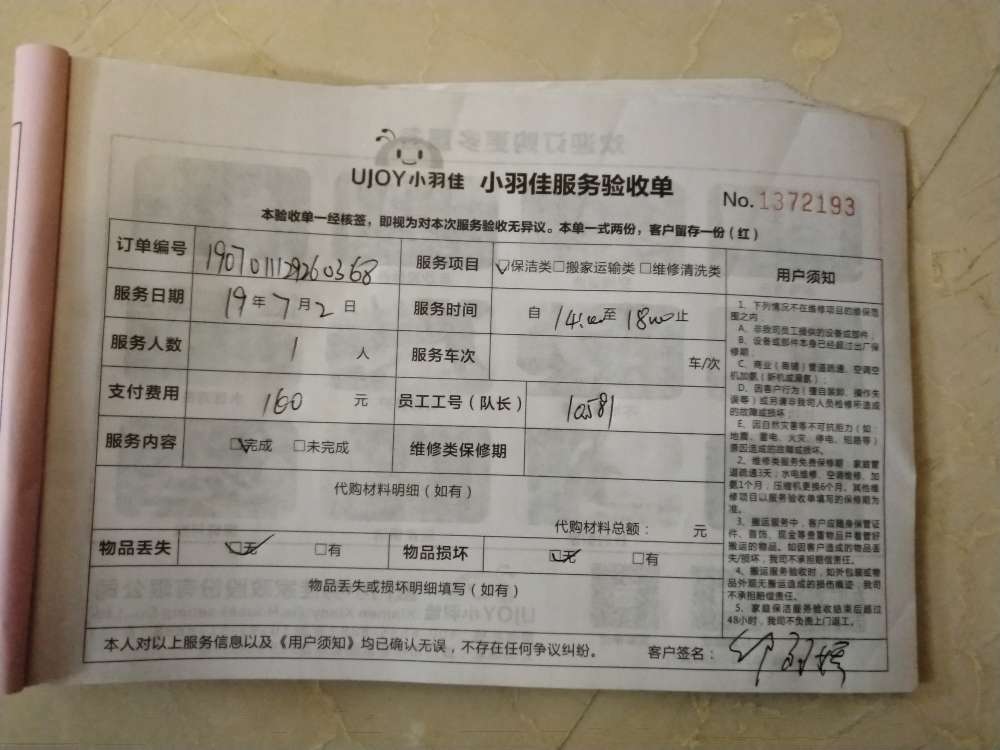 UJOY小羽佳 小羽佳服务验收单
No.1372193
本验收单一经核签，即视为对本次服务验收无异议。本单一式两份，客户留存一份（红）
订单编号 1907011129260368 服务项目 ☑保洁类□搬家运输类□维修清洗类
服务日期 19年7月2日 服务时间 自14:00至18:00止
服务人数 1人 服务车次 车/次
支付费用 160元 员工工号（队长） 10581
服务内容 ☑完成 □未完成 维修类保修期
代购材料明细（如有）
代购材料总额： 元
物品丢失 ☑无 □有 物品损坏 ☑无 □有
物品丢失或损坏明细填写（如有）
本人对以上服务信息以及《用户须知》均已确认无误，不存在任何争议纠纷。 客户签名：
用户须知
1、下列情况不在维修项目的维保范
围之内：
A、非我司员工提供的设备或部件；
B、设备或部件本身已经超过出厂保
修期；
C、商业（商铺）管道疏通、空调空
机加氨（新机或漏氨）；
D、因客户行为（擅自装卸、操作失
误等）或另请非我司人员检修所造成
的故障或损坏；
E、因自然灾害等不可抗拒力（如：
地震、雷电、火灾、停电、短路等）
原因造成的故障或损坏。
2、维修类服务免费保修期：家庭管
道疏通3天；水电维修、空调维修、加
氨1个月；压缩机更换6个月。其他维
修项目以服务验收单填写的保修期为
准。
3、搬运服务中，客户应随身保管证
件、首饰、现金等贵重物品并看管好
搬运的物品。如因客户造成的物品丢
失/损坏，我司不承担赔偿责任。
4、搬运服务验收时，如外包装或物
品外观无搬运造成的损伤痕迹，我司
不承担赔偿责任。
5、家庭保洁服务验收结束后超过
48小时，我司不负责上门返工。